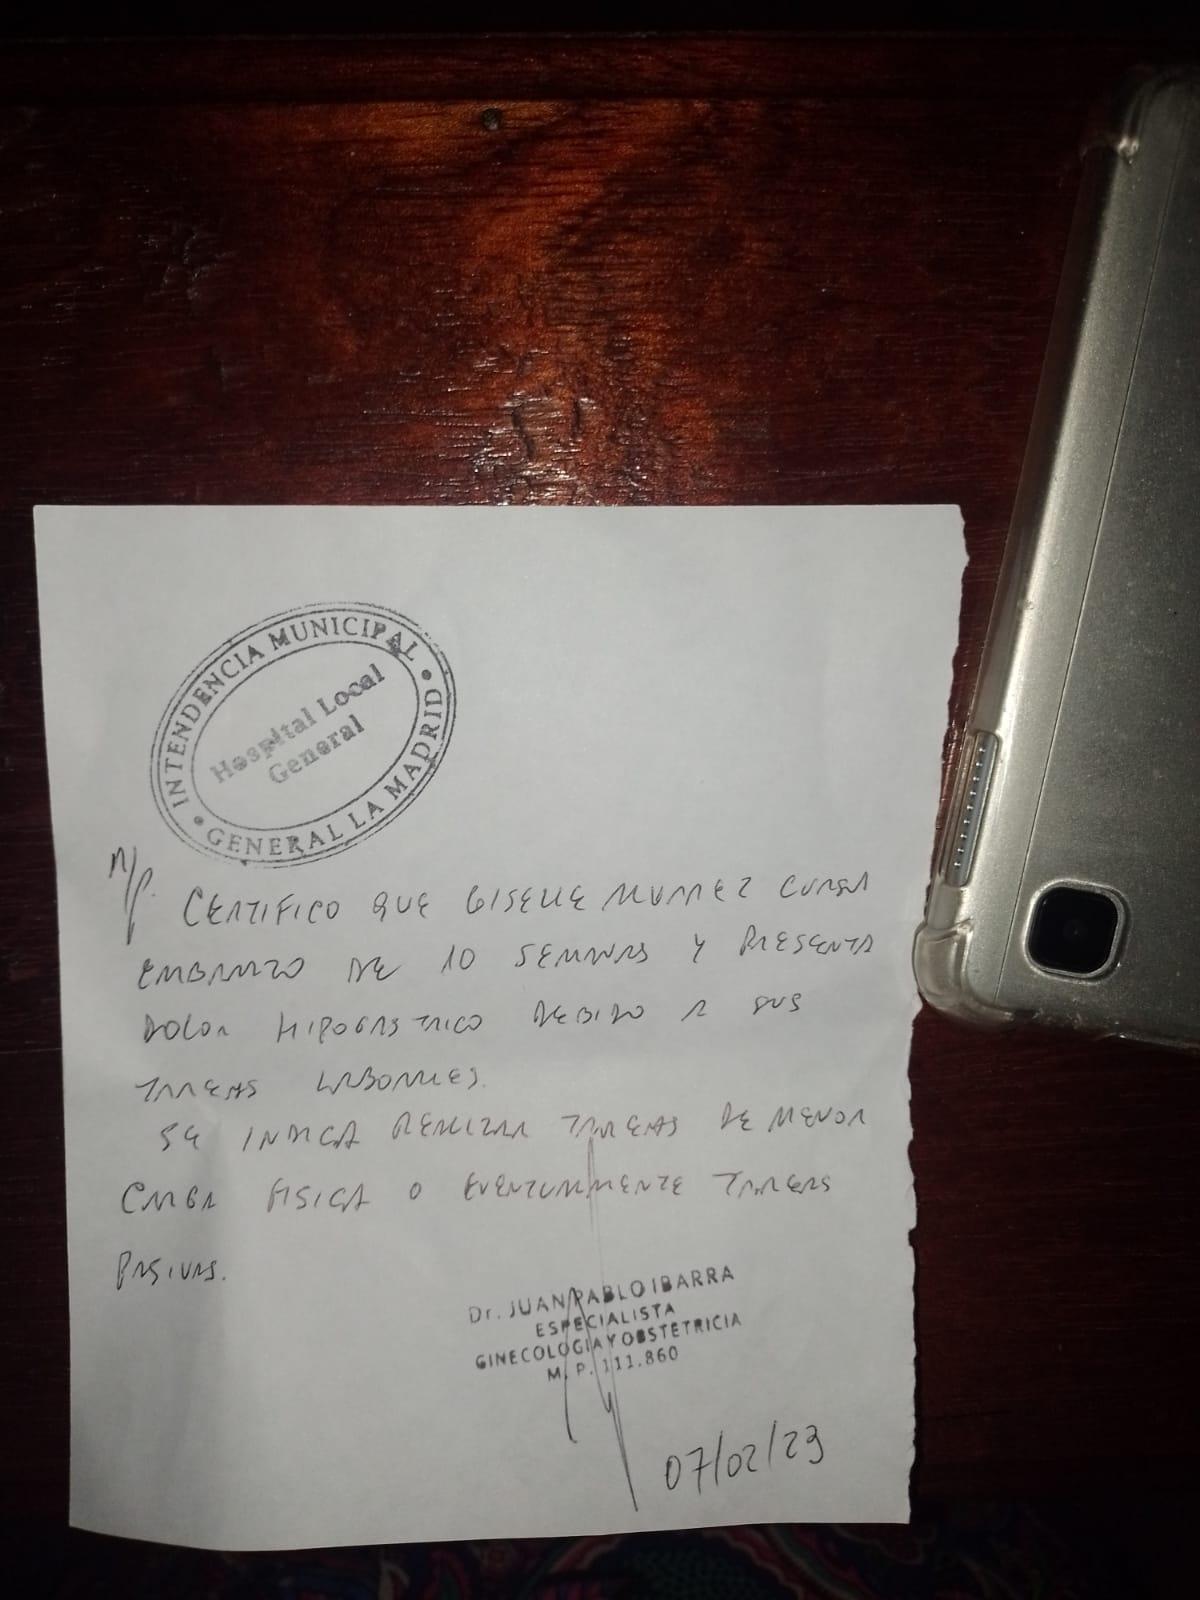 INTENDENCIA MUNICIPAL
Hospital Local
General
GENERAL LA MADRID
n/p. CERTIFICO QUE GISELLE CURSA
EMBARAZO DE 10 SEMANAS Y PRESENTA
DOLOR HIPOGASTRICO DEBIDO A SUS
TAREAS LABORALES.
SE INDICA REALIZAR TAREAS DE MENOR
CARGA FISICA O EVENTUALMENTE TAREAS
PASIVAS.
Dr. JUAN PABLO IBARRA
ESPECIALISTA
GINECOLOGIA Y OBSTETRICIA
M. P. 111.860
07/02/23